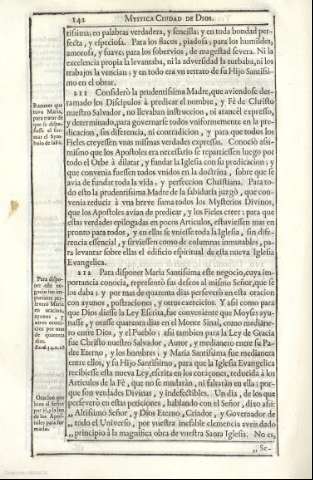 142
MYSTICA CIUDAD DE DIOS.
tissima; en palabras verdadera, y sencilla; y en toda bondad per-
fecta, y especiosa. Para los flacos, piadosa; para los humildes,
amorosa, y suave; para los sobervios, de magestad severa. Ni la
excelencia propia la levantaba, ni la adversidad la turbaba, ni los
trabajos la vencian; y en todo era un retrato de su Hijo Santissi-
mo en el obrar.
211 Considerò la prudentissima Madre, que aviendose der-
ramado los Discipulos à predicar el nombre, y Fè de Christo
nuestro Salvador, no llevaban instruccion, ni arancel expresso,
y determinado, para governarse todos uniformemente en la pre-
dicacion, sin diferencia, ni contradicion, y para que todos los
Fieles creyessen unas mismas verdades expressas. Conociò assi-
mismo que los Apostoles era necessario se repartiessen luego por
todo el Orbe à dilatar, y fundar la Iglesia con su predicacion; y
que convenia fuessen todos unidos en la doctrina, sobre que se
avia de fundar toda la vida, y perfeccion Christiana. Para to-
do esto la prudentissima Madre de la sabiduria juzgò, que con-
venia reducir à una breve suma todos los Mysterios Divinos,
que los Apostoles avian de predicar, y los Fieles creer; para que
estas verdades epilogadas en pocos Articulos, estuviessen mas en
pronto para todos, y en ellas se uniesse toda la Iglesia, sin dife-
rencia essencial, y sirviessen como de columnas inmutables, pa-
ra levantar sobre ellas el edificio espiritual de esta nueva Iglesia
Evangelica.
212 Para disponer Maria Santissima este negocio, cuya im-
portancia conocia, representò sus deseos al mismo Señor, que se
los daba; y por mas de quarenta dias perseverò en esta oracion
con ayunos, postraciones, y otros exercicios. Y assi como para
que Dios diesse la Ley Escrita, fue conveniente que Moyses ayu-
nasse, y orasse quarenta dias en el Monte Sinai, como mediane-
ro entre Dios, y el Pueblo; assi tambien para la Ley de Gracia
fue Christo nuestro Salvador, Autor, y medianero entre su Pa-
dre Eterno, y los hombres; y Maria Santissima fue medianera
entre ellos, y su Hijo Santissimo, para que la Iglesia Evangelica
recibiesse esta nueva Ley, escrita en los coraçones, reducida à los
Articulos de la Fè, que no se mudaràn, ni faltaràn en ella; por-
que son verdades Divinas, y indefectibles. Un dia, de los que
perseverò en estas peticiones, hablando con el Señor, dixo assi:
,, Altissimo Señor, y Dios Eterno, Criador, y Governador de
,, todo el Universo, por vuestra inefable clemencia aveis dado
,, principio à la magnifica obra de vuestra Santa Iglesia. No es,
,, Se-
Razones que
tuvo Maria,
para tratar de
que se dispu-
siesse el for-
mar el Sym-
bolo de la Fè.
Para dispo-
ner este ne-
gocio tan im-
portante per-
severò Maria
en oracion,
ayunos, y
otros exerci-
cios por mas
de quarenta
dias.
Oracion que
hizo al Señor
por si, y por los
de los Apos-
toles para for-
marlo.